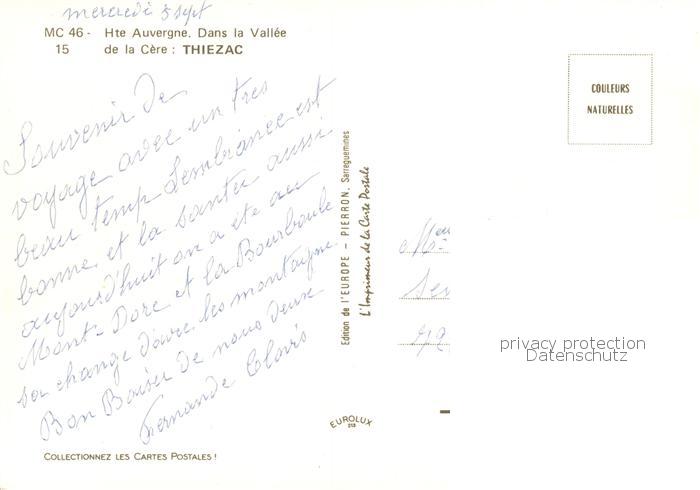 mercredi 5 sept
MC 46 - Hte Auvergne. Dans la Vallée
15 de la Cère : THIEZAC
Souvenir de
voyage avec un tres
beau temp Lembriance est
bonne et la santer aussi
aujourd'huit on a été au
Mont-Dore et la Bourboule
sa change d'avec les montaigne
Bon Baiser de nous deux
Fernande Clovis
COLLECTIONNEZ LES CARTES POSTALES !
Edition de l'EUROPE - PIERRON, Sarreguemines
L'Imprimeur de la Carte Postale
EUROLUX
COULEURS
NATURELLES
privacy protection
Datenschutz